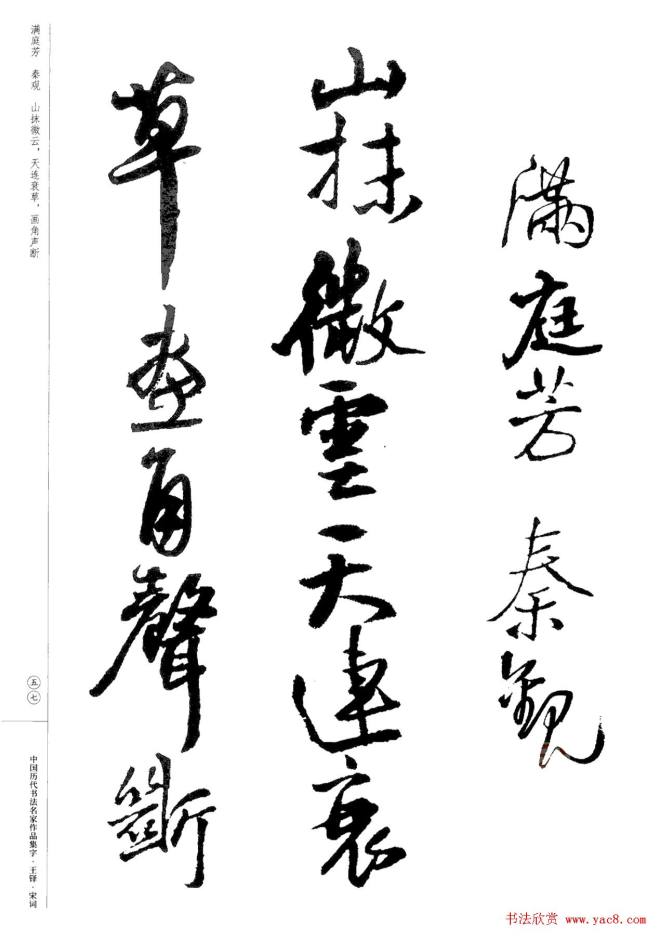 满庭芳 秦觀
山抹微雲天連衰
草畫角聲斷
满庭芳 秦观 山抹微云，天连衰草，画角声断
五七
中国历代书法名家作品集字·王铎·宋词
书法欣赏 www.yac8.com